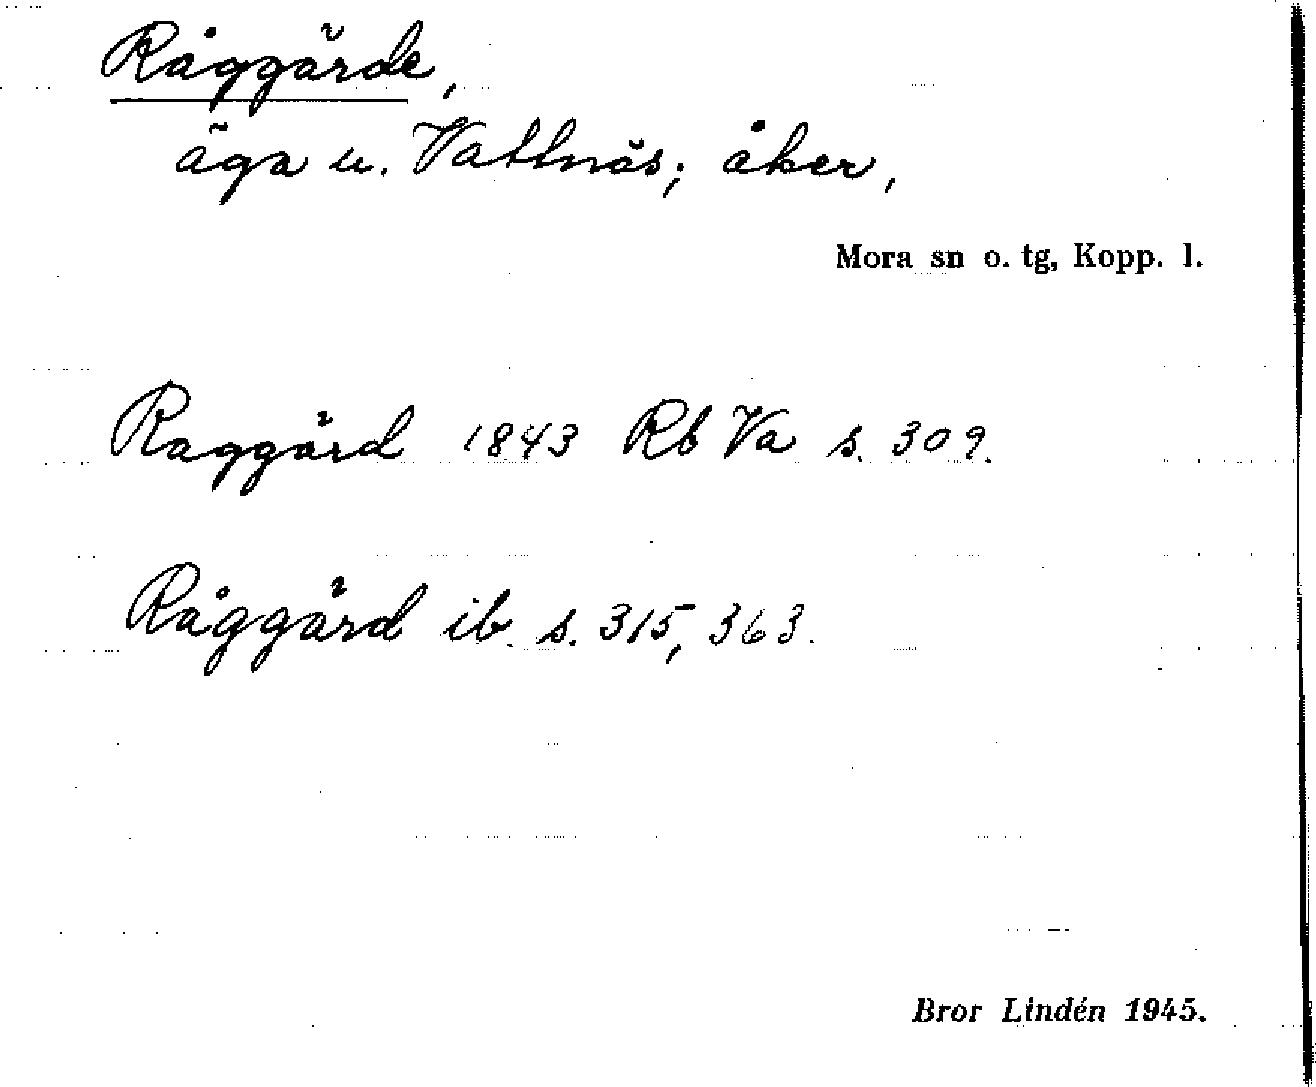 Råggärde,
äga u. Vattnäs; åker,
Mora sn o. tg, Kopp. l.
Raggärd 1843 Rb Va s. 309.
Råggärd ib. s. 315, 363.
Bror Lindén 1945.